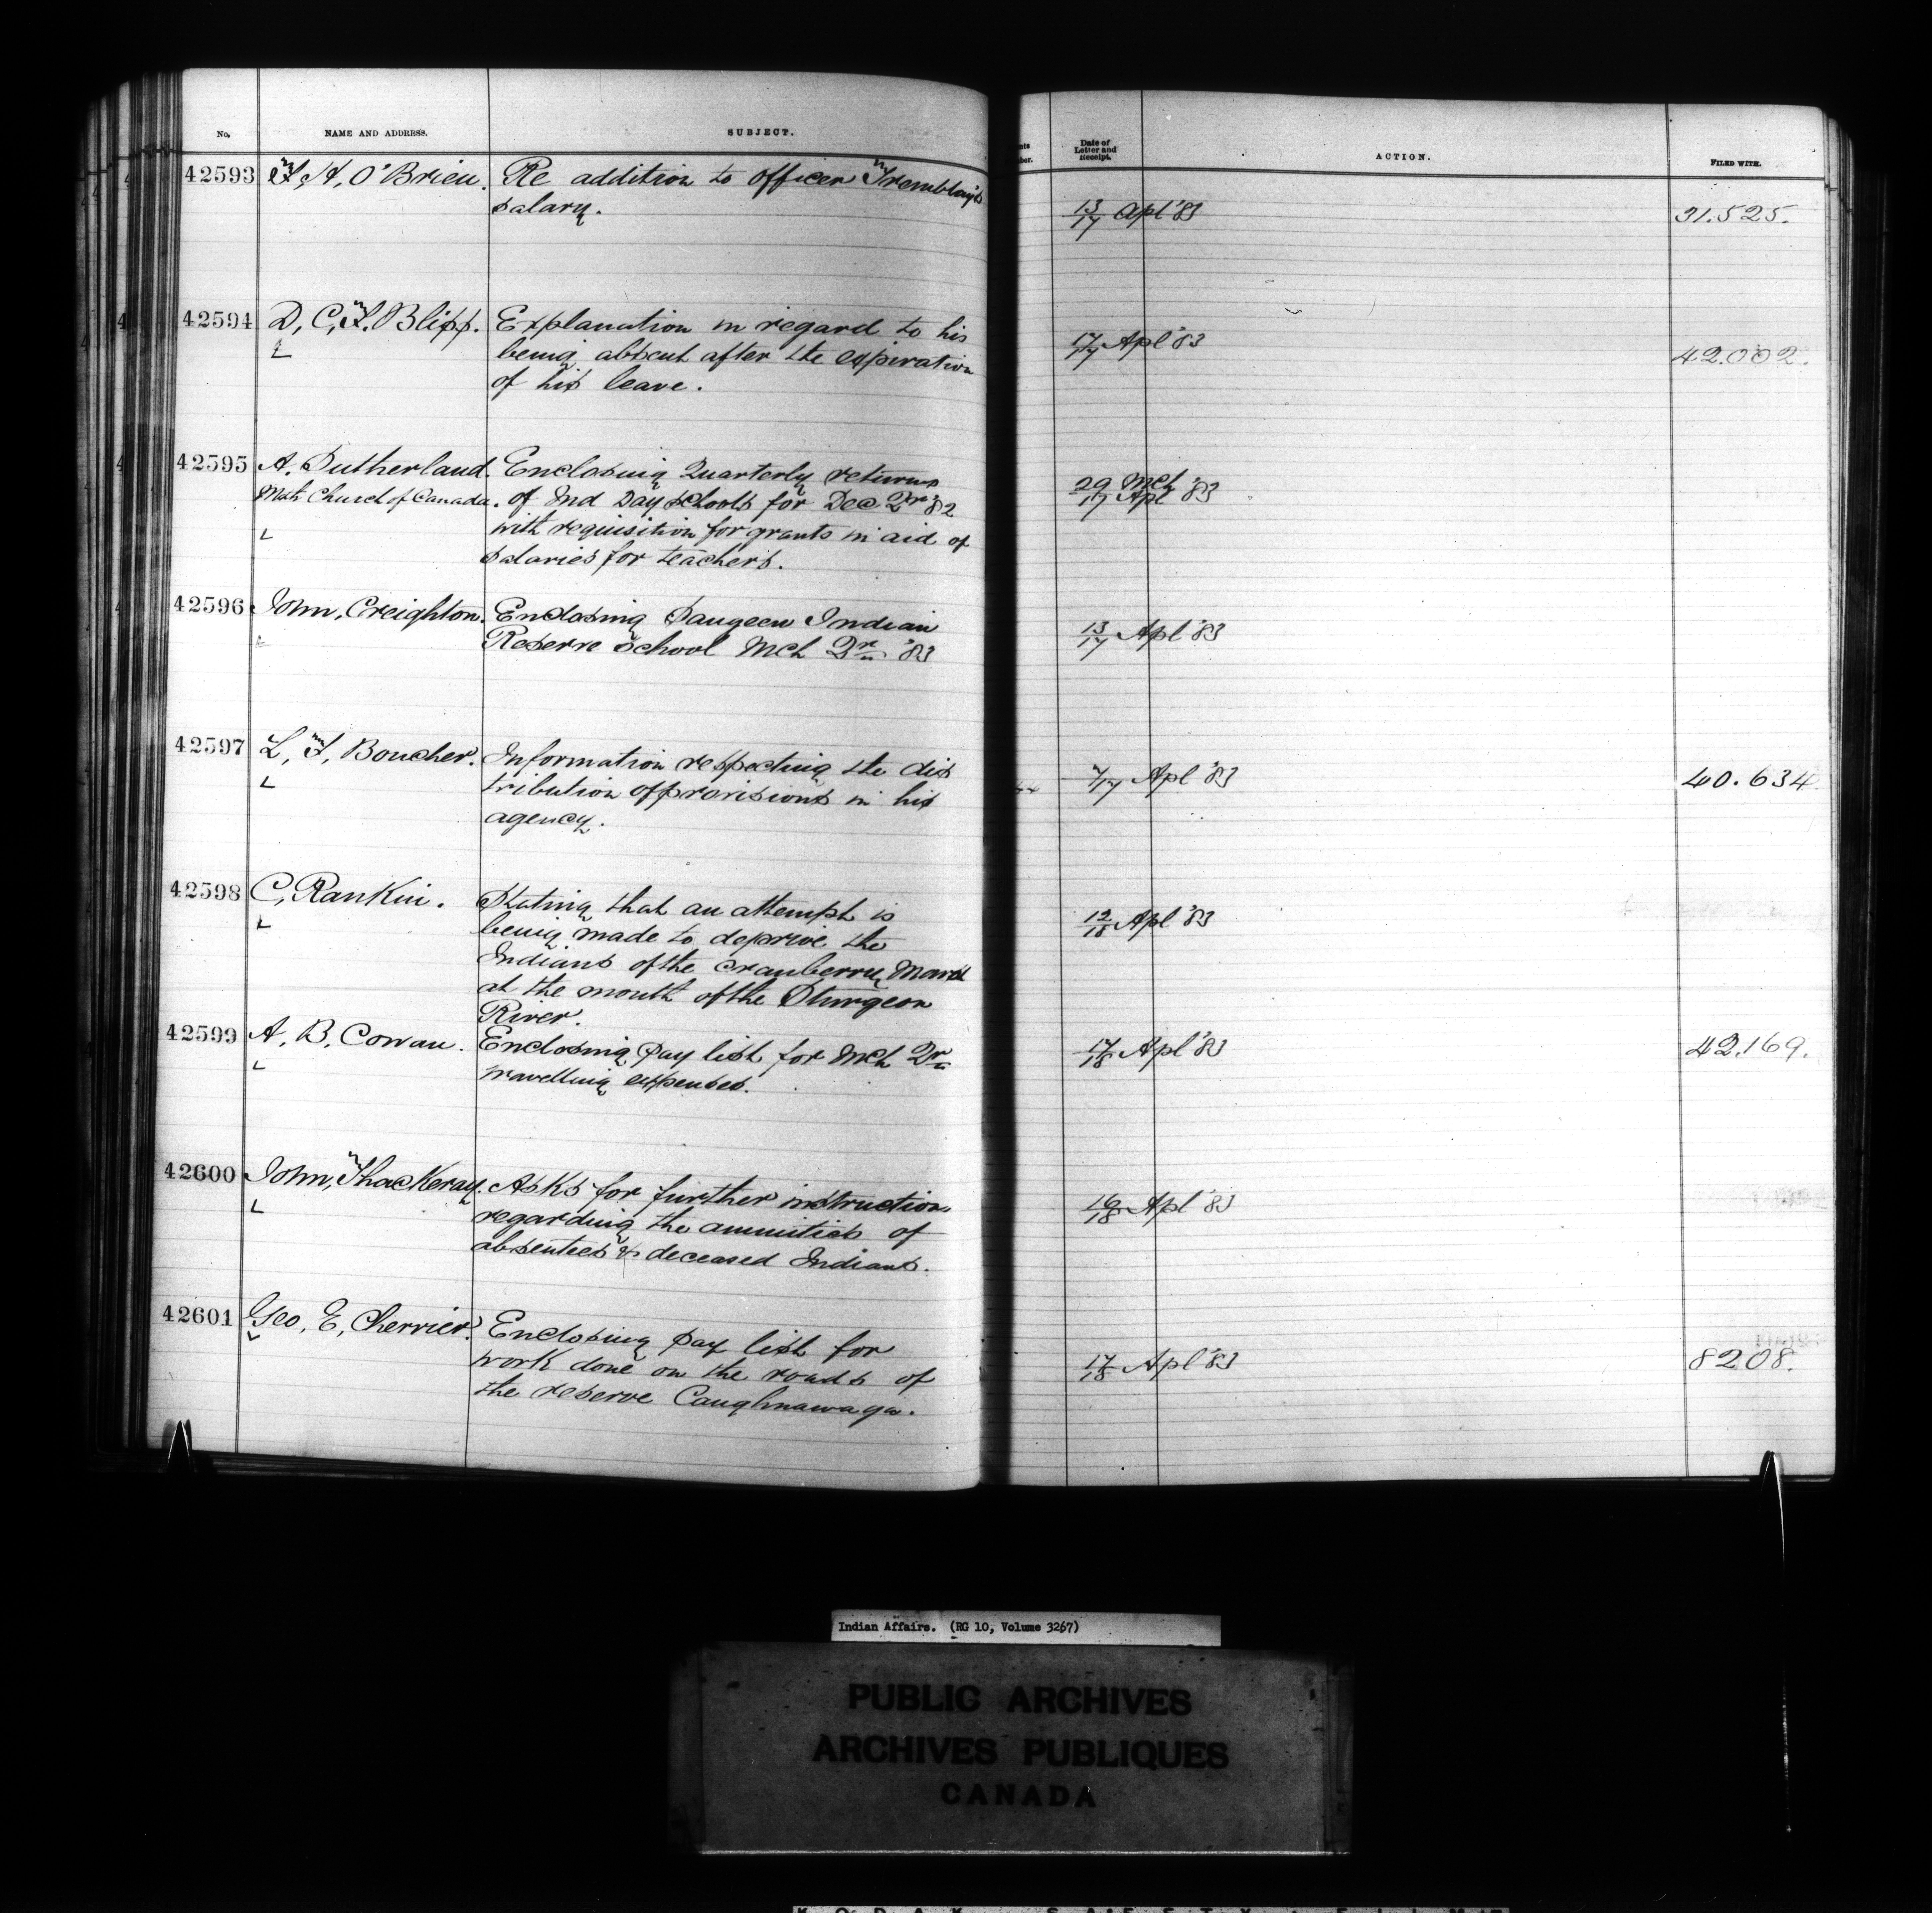 No. NAME AND ADDRESS. SUBJECT. Date of Letter and Receipt. ACTION. FILED WITH.
42593 H, O'Brien. Re addition to officer Tremblay's 13/17 Apl '83 31.525.
salary.
42594 D, C, F. Blipp. Explanation in regard to his 17/17 Apl '83 42.002.
being absent after the expiration
of his leave.
42595 A. Sutherland. Enclosing Quarterly returns 29 Mch / 17 Apl '83
Meth Church of Canada. of Ind Day schools for Dec Qr '82
with requisition for grants in aid of
salaries for teachers.
42596 John, Creighton. Enclosing Saugeen Indian 13/17 Apl '83
Reserve School Mch Qr '83
42597 L, F, Boucher. Information respecting the dis 7/17 Apl '83 40.634
tribution of provisions in his
agency.
42598 C, Rankin. Stating that an attempt is 12/18 Apl '83
being made to deprive the
Indians of the cranberry Marsh
at the mouth of the Sturgeon
River.
42599 A, B, Cowan. Enclosing pay list for Mch Qr 17/18 Apl '83 42.169.
travelling expenses.
42600 John, Thackeray. Asks for further instruction 16/18 Apl '83
regarding the annuities of
absentees & deceased Indians.
42601 Geo, E, Cherrier. Enclosing pay list for 17/18 Apl '83 8208.
work done on the roads of
the reserve Caughnawaga.
Indian Affairs. (RG 10, Volume 3267)
PUBLIC ARCHIVES
ARCHIVES PUBLIQUES
CANADA